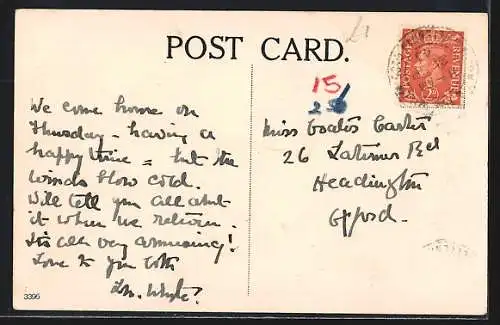 POST CARD.
15
We come home on
Thursday - having a
happy time = but the
winds blow cold.
Will tell you all about
it when we return.
It's all very amusing!
Love to you both
3396
POSTAGE
REVENUE
Miss
26 Latimer Rd
Headington
Oxford.